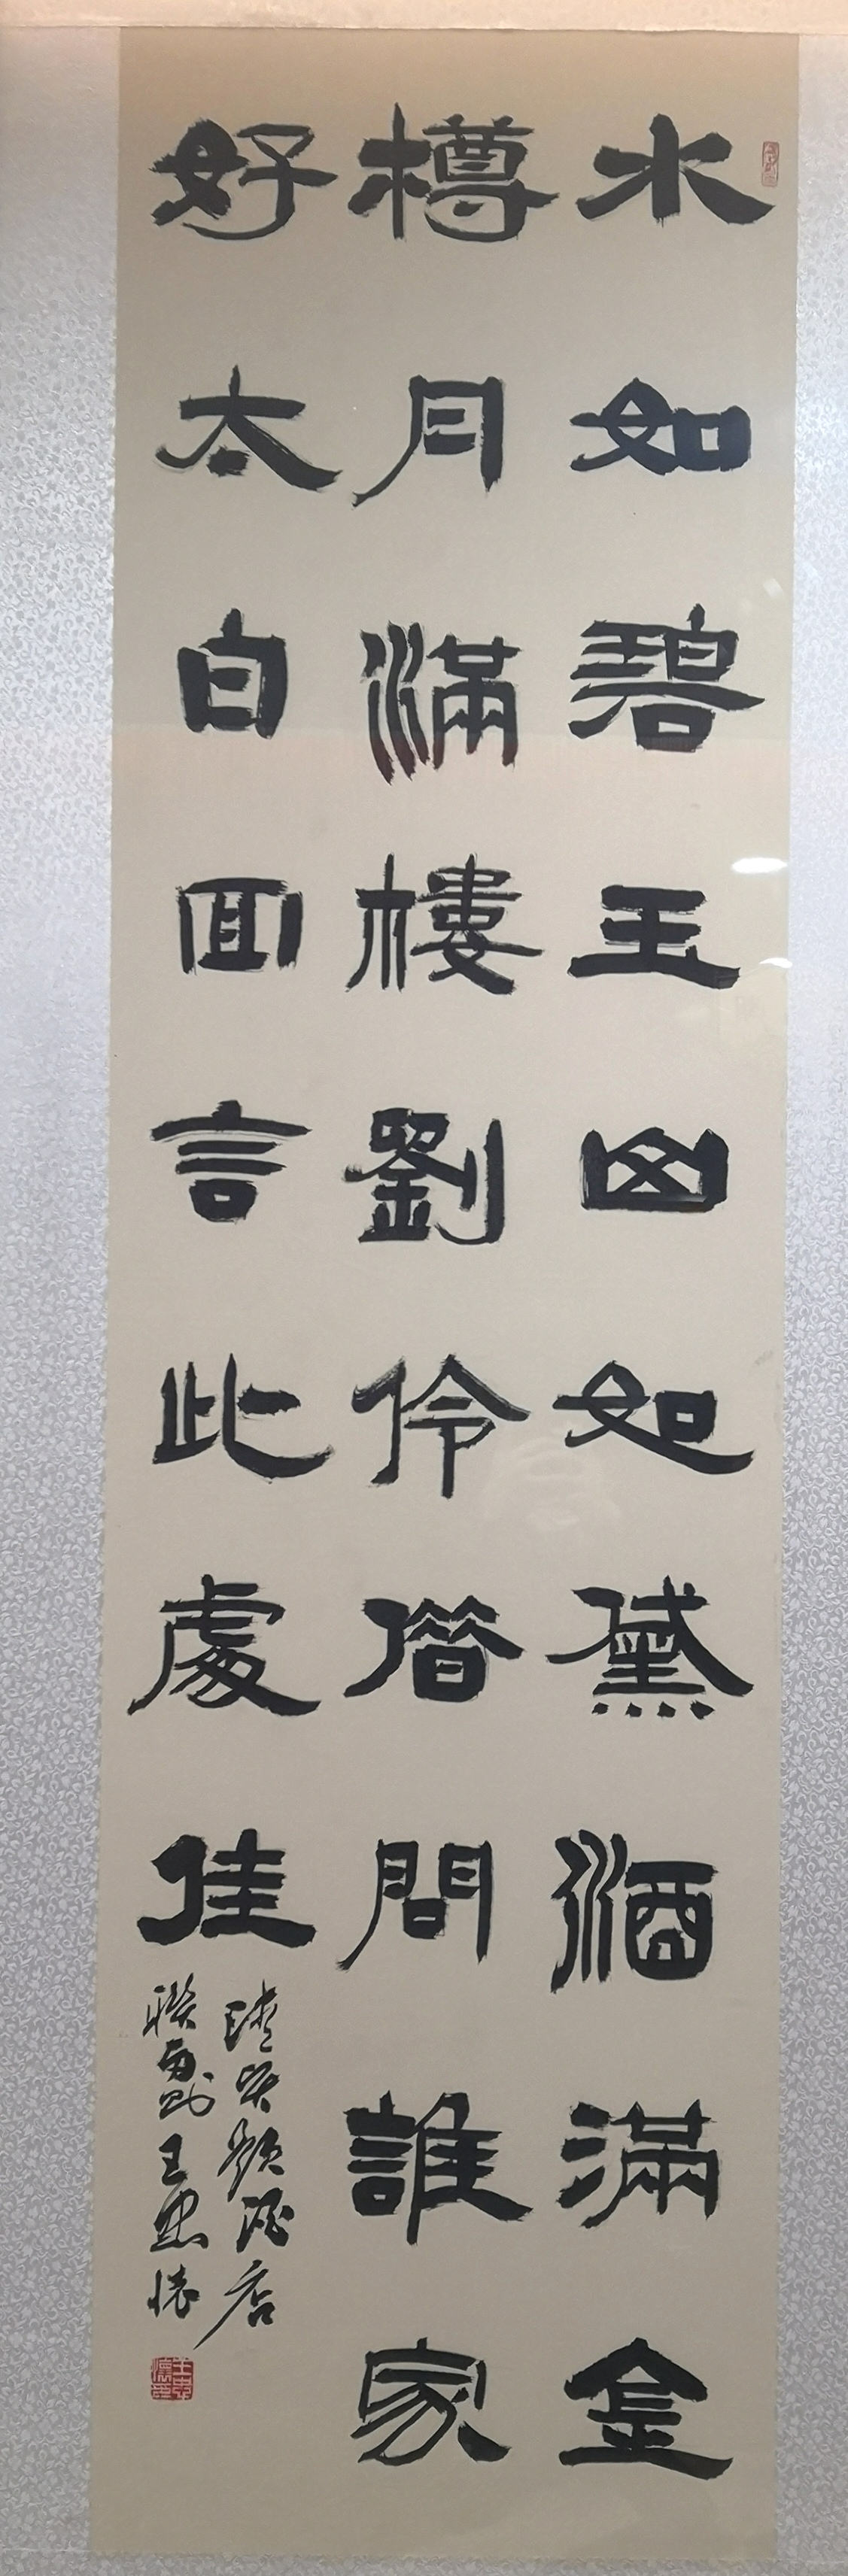 水如碧玉山如黛酒滿金
樽月滿樓劉伶借問誰家
好太白回言此處佳
題酒店
聯